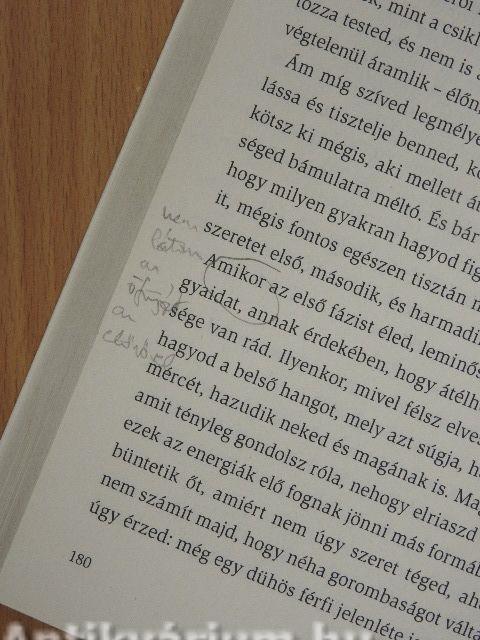 k, mint a csikl
tozza tested, és nem is a
végtelenül áramlik – élőn
Ám míg szíved legmélye
lássa és tisztelje benned, kö
kötsz ki mégis, aki mellett át
séged bámulatra méltó. És bár
hogy milyen gyakran hagyod fig
it, mégis fontos egészen tisztán
szeretet első, második, és harmadi
Amikor az első fázist éled, leminős
gyaidat, annak érdekében, hogy átélh
sége van rád. Ilyenkor, mivel félsz elves
hagyod a belső hangot, mely azt súgja, h
mércét, hazudik neked és magának is. Ma
amit tényleg gondolsz róla, nehogy elriaszd
ezek az energiák elő fognak jönni más formá
büntetik őt, amiért nem úgy szeret téged, aho
nem számít majd, hogy néha gorombaságot válta
úgy érzed: még egy dühös férfi jelenléte is
180
nem
látom
az
az
Antikvárium.hu